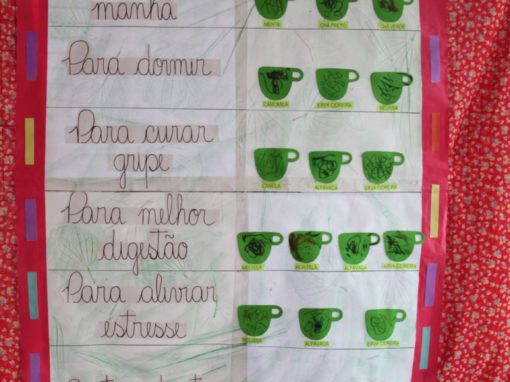 manhã
MENTA CHÁ PRETO CHÁ VERDE
Para dormir
CAMOMILA ERVA CIDREIRA MELISSA
Para curar
gripe
CANELA ALFAVACA ERVA CIDREIRA
Para melhor
digestão
MELISSA HORTELÃ ALFAVACA ERVA CIDREIRA
Para aliviar
estresse
MELISSA ALFAVACA ERVA CIDREIRA